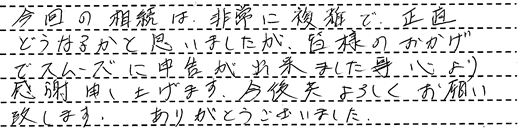 今回の相続は、非常に複雑で、正直
どうなるかと思いましたが、皆様のおかげ
でスムーズに申告が出来ました事心より
感謝申し上げます。今後共よろしくお願い
致します。 ありがとうございました。